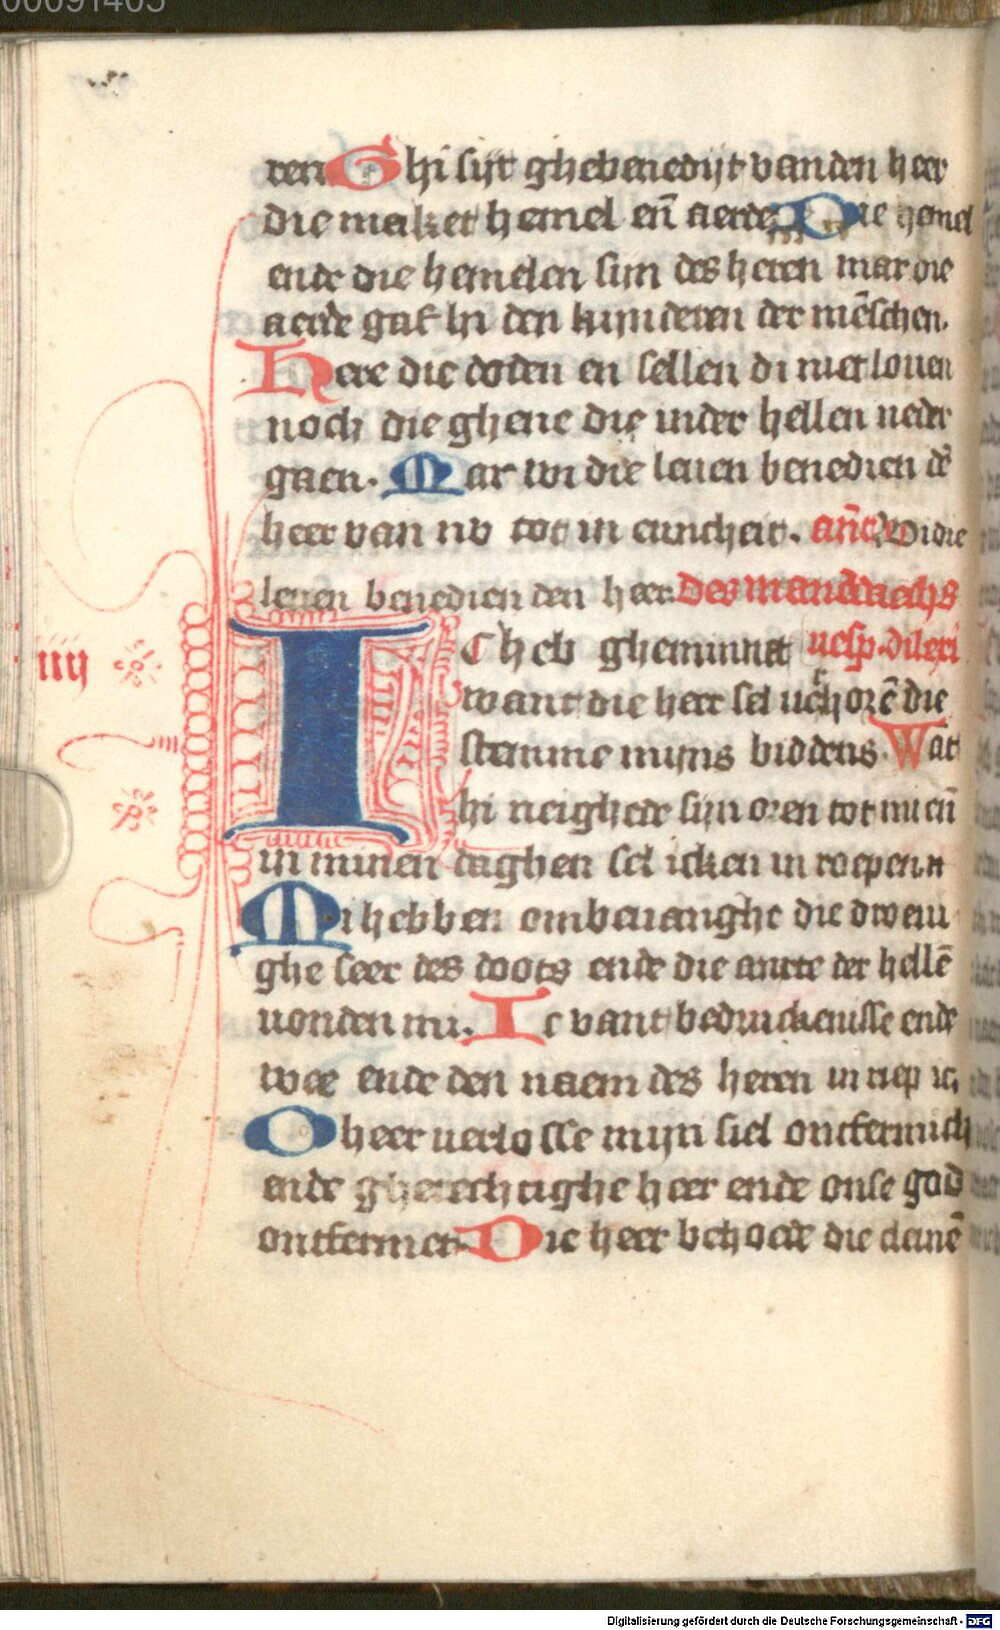 00091405
ren Ghi sijt ghebenedijt vanden heer
die maket hemel eñ aerde Die hemel
ende die hemelen sijn des heren mar die
aerde gaf hi den kijnderen der mēschen.
Here die doden en sellen di niet louen
noch die ghene die inder hellen neder
gaen. Mar wi die leuen benedien dē
heer van nv tot in ewicheit. añt Wi die
leuen benedien den heer. Des manēdaechs
IC heb gheminnet uesp. dilexi
want die heer sel uerhorē die
stemme mijns biddens. Wāt
hi neighede sijn oren tot mi eñ
in minen daghen sel icken in roepen.
Mi hebben ombeuanghe die drouui
ghe seer des doots ende die anxte der hellē
uonden mi. Ic vant bedruckenisse ende
wee ende den naem des heren in riep ic.
O heer uerlosse mijn siel ontfermich
ende gherechtighe heer ende onse god
ontfermet. Die heer behoede die cleinē
iiij
Digitalisierung gefördert durch die Deutsche Forschungsgemeinschaft - DFG